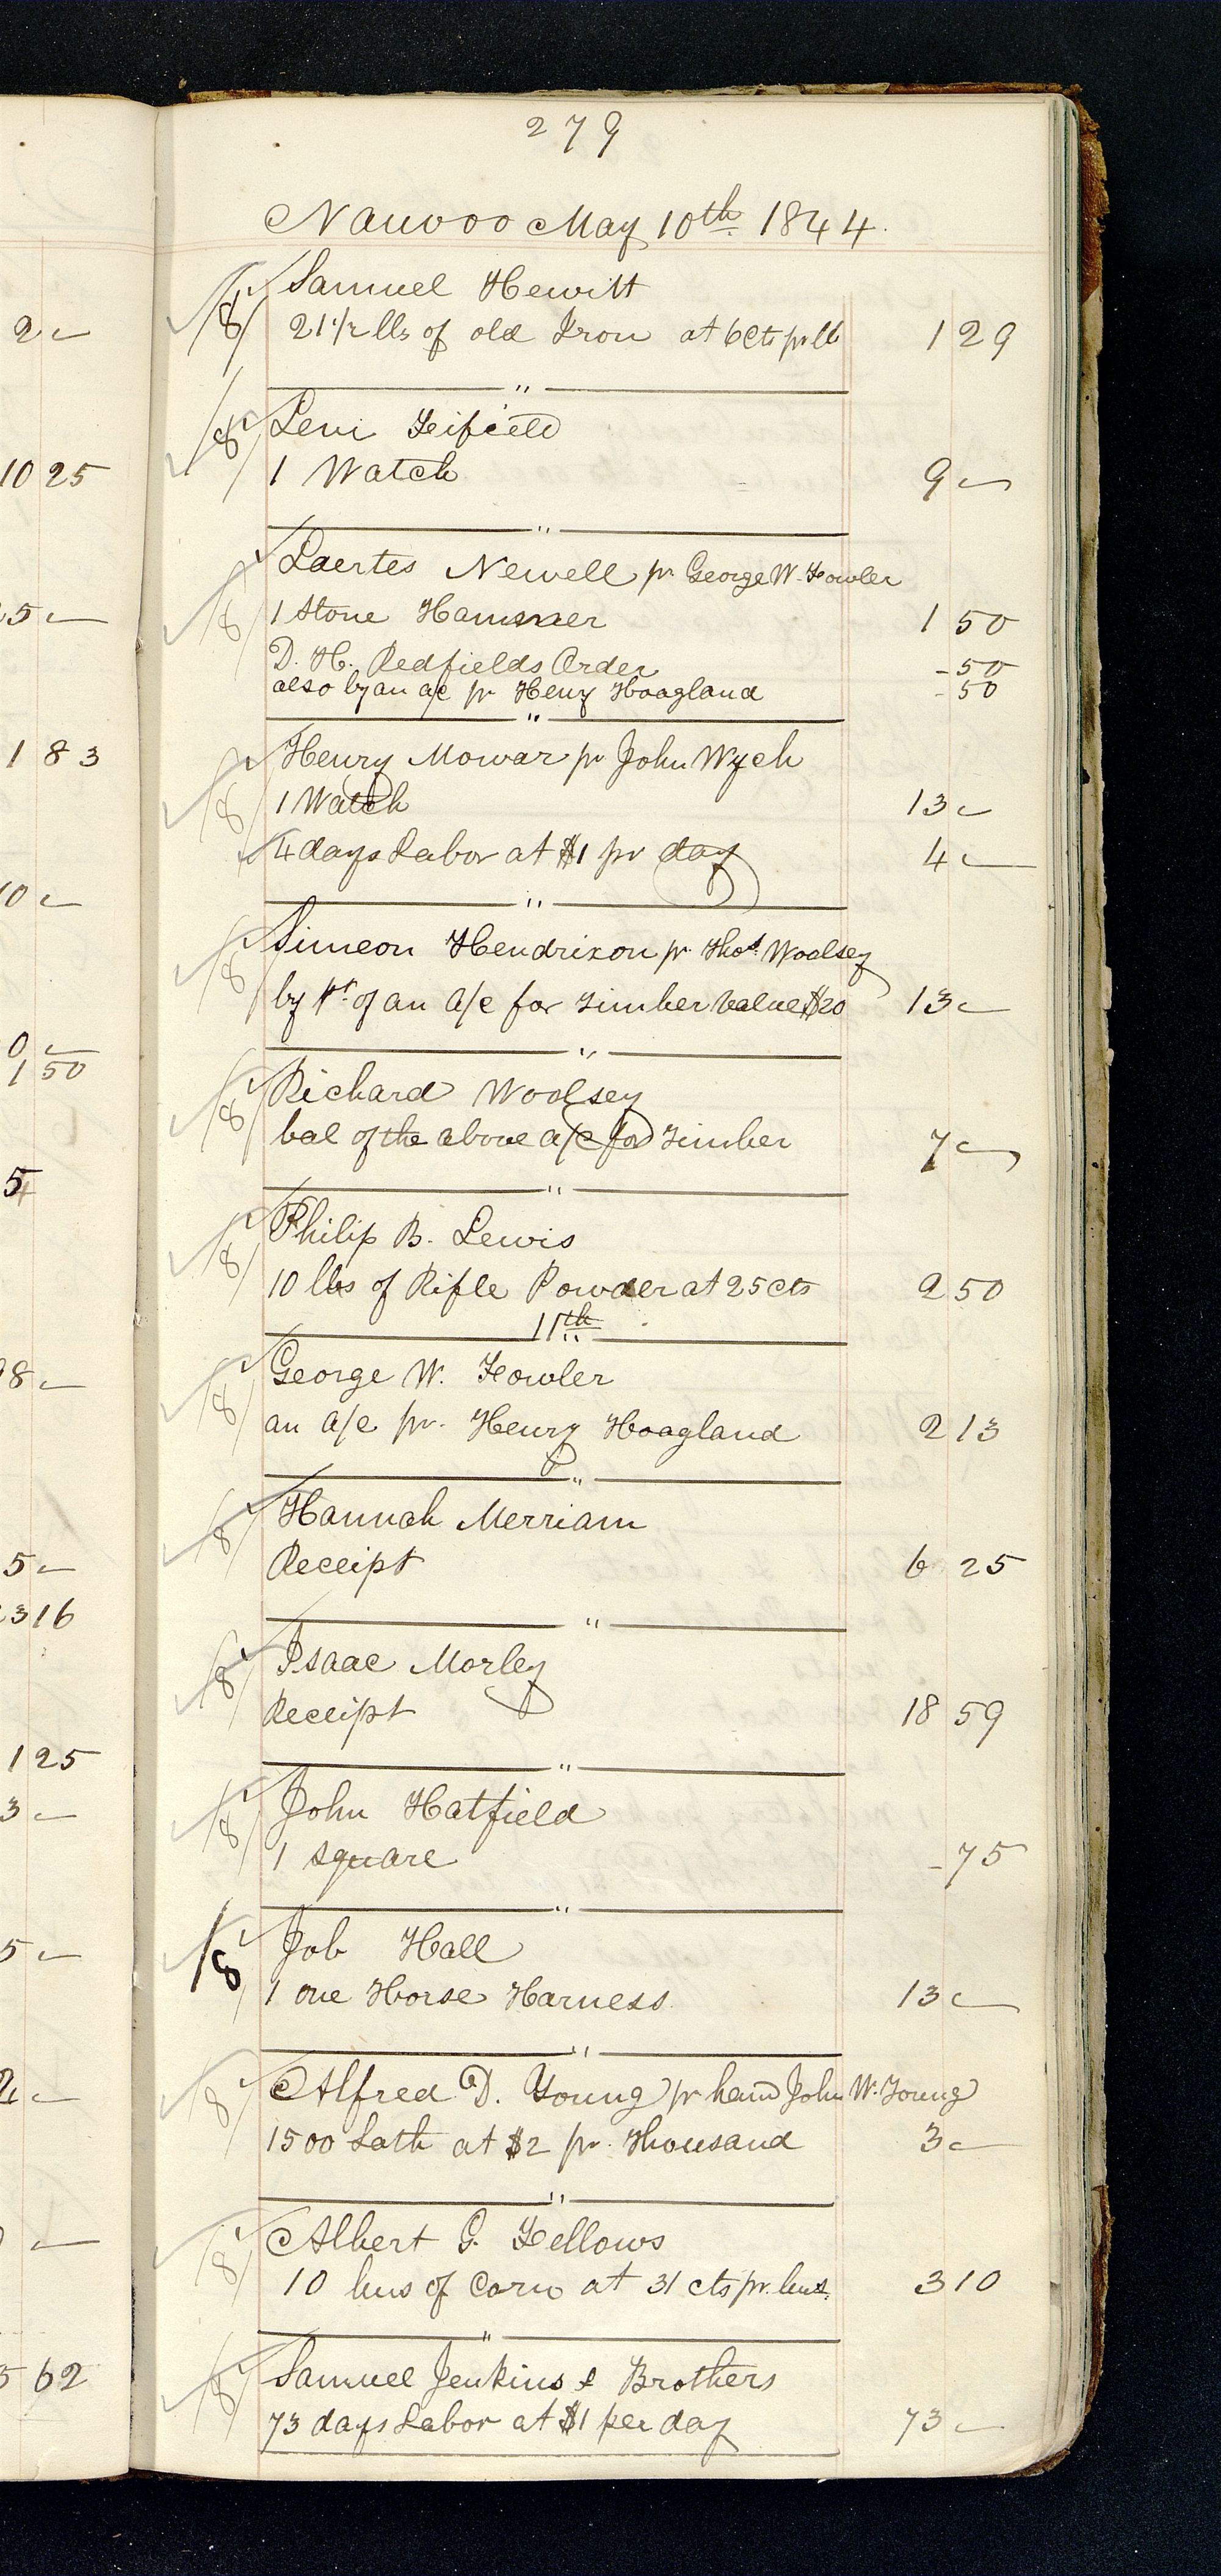 279
Nauvoo May 10th 1844.
8 Samuel Hewitt
21 1/2 lbs of old Iron at 6 Cts pr lb 1 29
"
8 Levi Feifield
1 Watch 9 –
"
Laertes Newell pr George W. Fowler
8 1 Stone Hammer 1 50
D. H. Redfields Order - 50
also by an a/c pr Henry Hoagland - 50
"
Henry Mowar pr John Wych
8 1 Watch 13 –
4 days Labor at $1 pr day 4 –
"
8 Simeon Hendrixon pr Thos. Woolsey
by pt. of an a/c for Timber value $20 13 –
"
8 Richard Woolsey
bal of the above a/c for Timber 7 –
"
8 Philip B. Lewis
10 lbs of Rifle Powder at 25 cts 2 50
11th
8 George W. Fowler
an a/c pr. Henry Hoagland 2 13
"
8 Hannah Merriam
Receipt 6 25
"
8 Isaac Morley
Receipt 18 59
"
8 John Hatfield
1 square - 75
"
8 Job Hall
1 one Horse Harness 13 –
"
8 Alfred D. Young pr hand John W. Young
1500 Lath at $2 pr. Thousand 3 –
"
8 Albert G. Fellows
10 bus of Corn at 31 cts pr. bus. 3 10
"
8 Samuel Jenkins & Brothers
73 days Labor at $1 per day 73 –
2 –
10 25
5 –
1 83
10 –
0 –
1 50
5
8 –
5 –
3 16
1 25
3 –
5 –
2 –
–
5 62